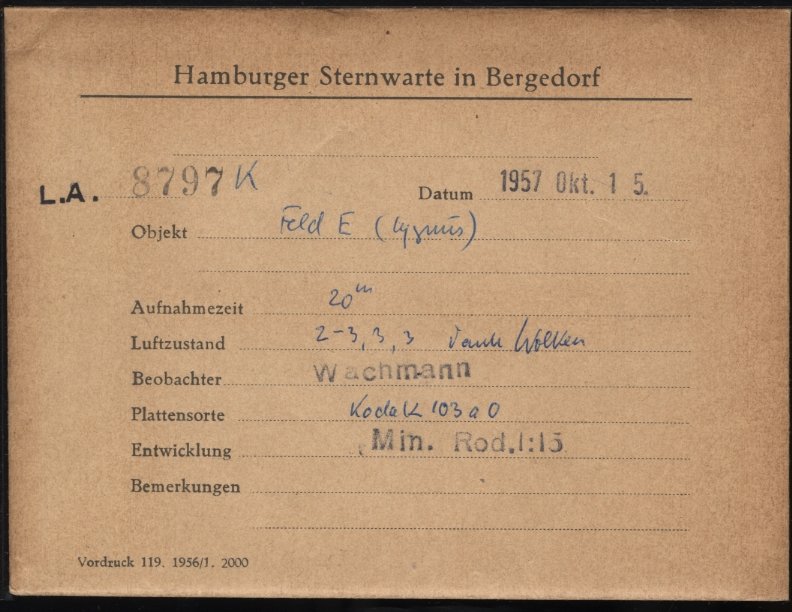 Hamburger Sternwarte in Bergedorf
L.A. 8797 K Datum 1957 Okt. 15.
Objekt Feld E (Cygnus)
Aufnahmezeit 20 m
Luftzustand 2-3, 3, 3 Wolken
Beobachter Wachmann
Plattensorte Kodak 103 a O
Entwicklung Min. Rod. 1:15
Bemerkungen
Vordruck 119. 1956/1. 2000